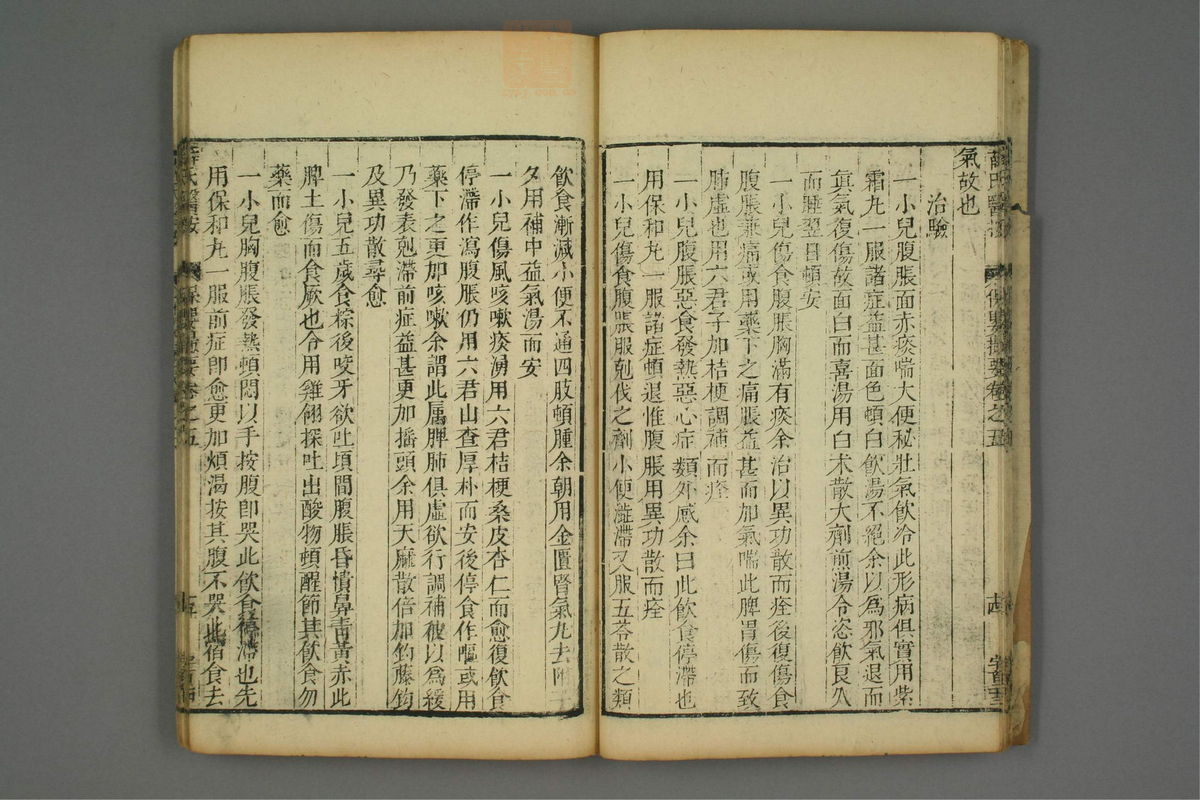 氣故也
治驗
一小兒腹脹面赤痰喘大便秘壯氣飲冷此形病俱實用紫
霜丸一服諸症益甚面色頓白飲湯不絕余以爲邪氣退而
眞氣復傷故面白而喜湯用白朮散大劑煎湯令恣飲良久
而睡翌日頓安
一小兒傷食腹脹胸滿有痰余治以異功散而痊後復傷食
腹脹兼痛或用藥下之痛脹益甚而加氣喘此脾胃傷而致
肺虛也用六君子加桔梗調補而痊
一小兒腹脹惡食發熱惡心症類外感余曰此飲食停滯也
用保和丸一服諸症頓退惟腹脹用異功散而痊
一小兒傷食腹脹服剋伐之劑小便澁滯又服五苓散之類
飲食漸減小便不通四肢頓腫余朝用金匱腎氣丸去附子
夕用補中益氣湯而安
一小兒傷風咳嗽痰湧用六君桔梗桑皮杏仁而愈復飲食
停滯作瀉腹脹仍用六君山查厚朴而安後停食作嘔或用
藥下之更加咳嗽余謂此屬脾肺俱虛欲行調補彼以爲緩
乃發表剋滯前症益甚更加搖頭余用天麻散倍加釣藤鈎
及異功散尋愈
一小兒五歲食粽後咬牙欲吐頃間腹脹昏憒鼻青黃赤此
脾土傷而食厥也令用雞翎探吐出酸物頓醒節其飲食勿
藥而愈
一小兒胸腹脹發熱頓悶以手按腹即哭此飲食停滯也先
用保和丸一服前症即愈更加煩渴按其腹不哭此宿食去
薛氏醫按 保嬰撮要卷之五